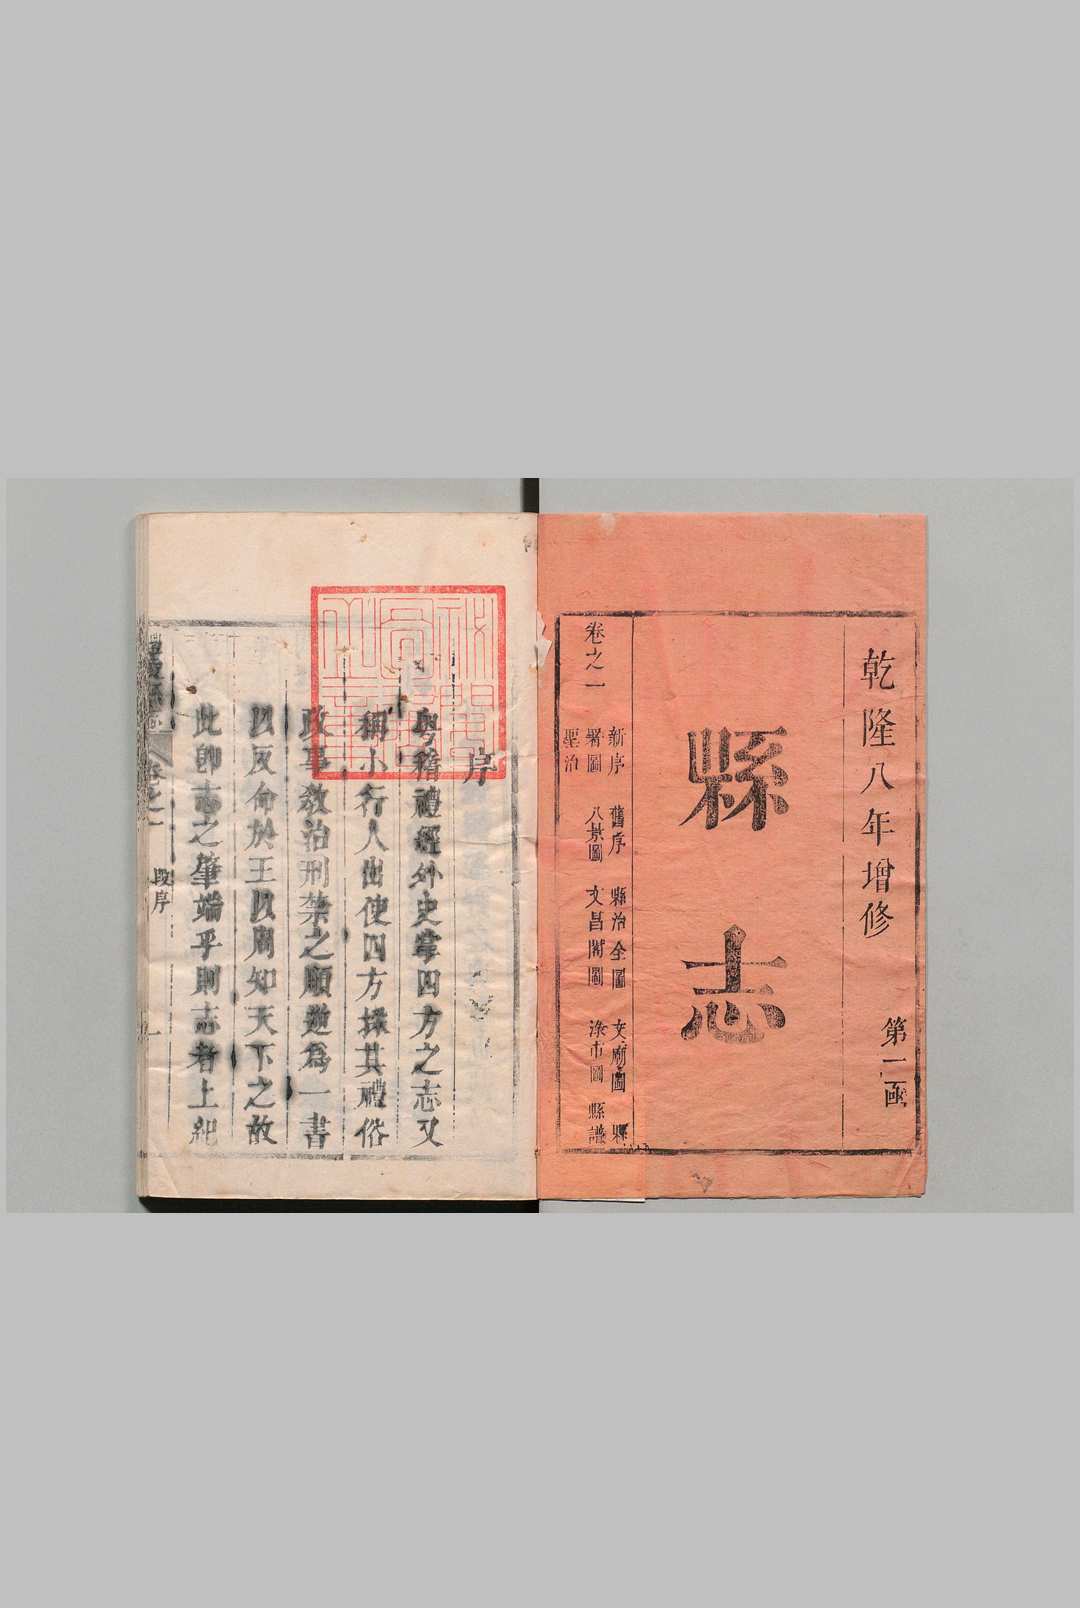 乾隆八年增修
第一函
縣志
卷之一
新序 舊序 縣治全圖 文廟圖 縣
署圖 八景圖 文昌閣圖 淥市圖 縣譜
聖治
序
粤稽禮經外史掌四方之志又
稱小行人出使四方採其禮俗
政事教治刑禁之順逆為一書
以反命於王以周知天下之故
此卽志之肇端乎則志者上紀
卷之一
段序
一